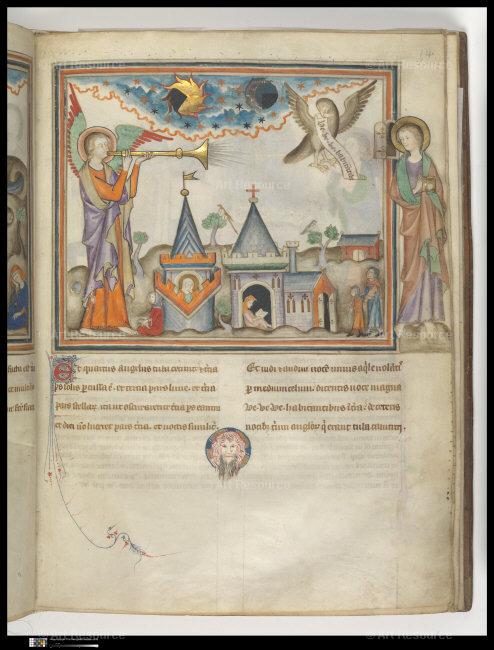 14
Ve ve ve habitantib
Et quartus angelus tuba cecinit: et t̃cia
ps solis p̃cussa ẽ. et tercia pars lune. et t̃cia
pars stellaꝝ. ita ut obscuraret̃ t̃cia ps eorum
et diei nõ luceret pars t̃cia. et noctis similit̃.
Et uidi et audiui uocẽ unius aq̃le uolãt
p medium celum. dicentis uoce magna
ve. ve. ve. habitantibus ĩ t̃ra: de ceteris
uocib; triũ angloꝝ q̃ erant tuba canituri.
Art Resource